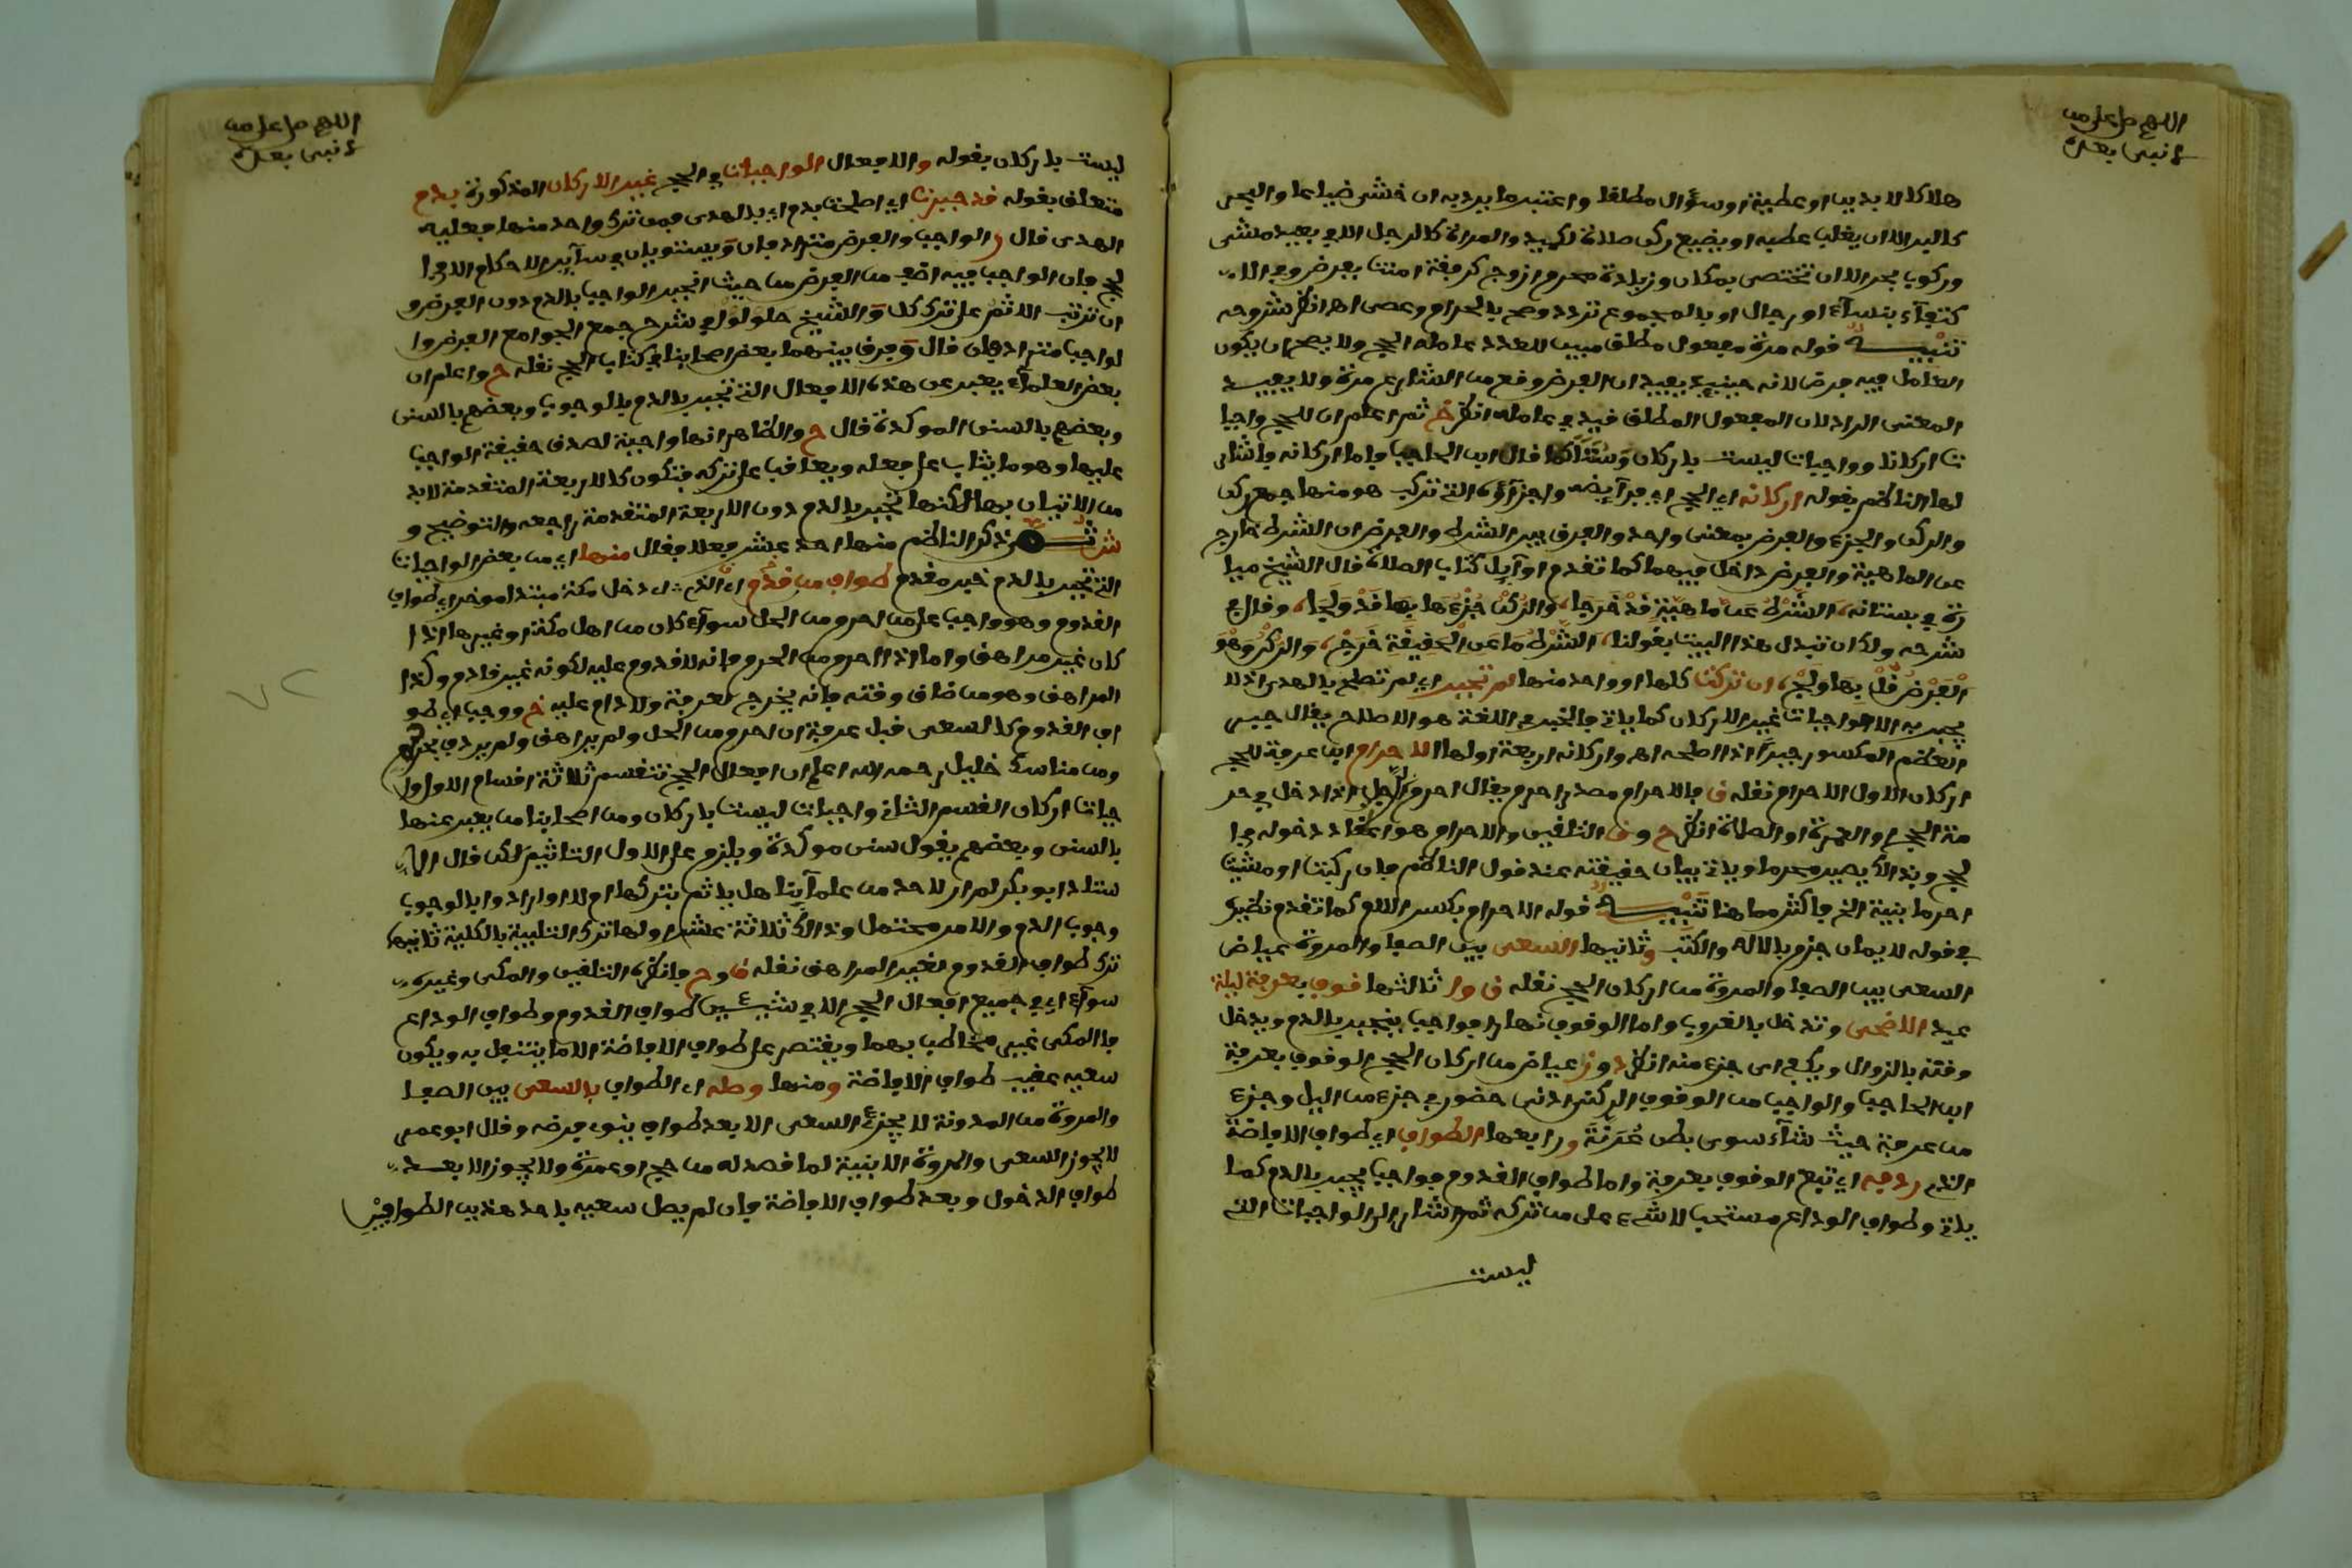 اللهم صل على من
لا نبي بعده
هلاكا لا بدين او عطية او سؤال مطلقا واعتبر ما يرد به ان خشي ضياعا والبحر
كالبر الا ان يغلب عطبه او يضيع ركن صلاة لكميد والمراة كالرجل الا في بعيد مشي
وركوب بحر الا ان تختص بمكان وزيادة محرم او زوج كرفقة امنت بفرض وفي الا
كتفاء بنساء او رجال او بالمجموع تردد وصح بالحرام وعصى اهـ انظر شروحه
تنبيه قوله مرة مفعول مطلق مبين للعدد عامله الحج ولا يصح ان يكون
العامل فيه فرض لانه حينئذ يفيد ان الفرض وقع من الشارع مرة ولا يفيد
المعنى المراد لان المفعول المطلق قيد في عامله انظر ثم اعلم ان للحج واجبا
ت اركانا وواجبات ليست باركان وسننا كما قال ابن الحاجب واما اركانه واشار
لها الناظم بقوله اركانه اي الحج اي فرايضه واجزاؤه التي تركب هو منها جمع ركن
والركن والجزء والفرض بمعنى واحد والفرق بين الشرط والفرض ان الشرط خارج
عن الماهية والفرض داخل فيهما كما تقدم اوايل كتاب الصلاة قال الشيخ ميا
رة في بستانه الشرط عن ماهية قد خرجا والركن جزءها بها قد ولجا وقال في
شرحه ولك ان تبدل هذا البيت بقولنا الشرط ما عن الحقيقة خرج والركن وهو
الفرض قل بها ولج ان تركت كلها او واحد منها لم تجبر اي لم تصلح بالهدي اذ لا
يجبر به الا الواجبات غير الاركان كما ياتي والجبر في اللغة هو الاصلاح يقال جبر
العظم المكسور جبرا اذا اصلحه اهـ واركانه اربعة اولها الاحرام ابن عرفة للحج
اركان الاول الاحرام نقله ق والاحرام مصدر احرم يقال احرم الرجل اذا دخل في حر
مة الحج او العمرة او الصلاة انظر ح وفي التلقين والاحرام هو اعتقاد دخوله في ا
لحج وبذالك يصير محرما وياتي بيان حقيقته عند قول الناظم وان ركبت او مشيت
احرما بنية الخ فاكثر مما هنا تنبيه قوله الاحرام بكسر اللام كما تقدم نظيره
في قوله لايمان جزم بالاله والكتب وثانيها السعي بين الصفا والمروة عياض
السعي بين الصفا والمروة من اركان الحج نقله ق و ثالثها وقوف بعرفة ليلة
عيد الاضحى وتدخل بالغروب واما الوقوف نهارا فواجب ينجبر بالدم ويدخل
وقته بالزوال ويكفي اي جزء منه انظر عياض من اركان الحج الوقوف بعرفة
ابن الحاجب والواجب من الوقوف الركني ادنى حضور في جزء من اليل وجزء
من عرفة حيث شاء سوى بطن عرنة ورابعها الطواف اي طواف الافاضة
الذي ردفه اي تبع الوقوف بعرفة واما طواف القدوم فواجب يجبر بالدم كما
ياتي وطواف الوداع مستحب لا شيء على من تركه ثم اشار الى الواجبات التي
ليست
اللهم صل على من
لا نبي بعده
ليست باركان بقوله والافعال الواجبات في الحج غير الاركان المذكورة بدم
متعلق بقوله قد جبرت اي اصلحت بدم اي بالهدي فمن ترك واحدا منها فعليه
الهدي قال والواجب والفرض مترادفان ويستويان في ساير الاحكام الا في ا
لحج وان الواجب فيه اخف من الفرض من حيث انجبر الواجب بالدم دون الفرض و
ان ترتب الاثم على ترك كل والشيخ حلولو في شرح جمع الجوامع الفرض وا
لواجب مترادفان قال وفرق بينهما بعض اصحابنا في كتاب الحج نقله ح واعلم ان
بعض العلماء يعبر عن هذه الافعال التي تجبر بالدم بالوجوب وبعضهم بالسنن
وبعضهم بالسنن الموكدة قال ح والظاهر انها واجبة لصدق حقيقة الواجب
عليها وهو ما يثاب على فعله ويعاقب على تركه فتكون كالاربعة المتقدمة لا بد
من الاتيان بها لكنها تجبر بالدم دون الاربعة المتقدمة راجعه والتوضيح و
ذكر الناظم منها احد عشر فعلا فقال منها اي من بعض الواجبات
التي تجبر بالدم خبر مقدم طواف من قدم اي الذي دخل مكة مبتدا موخر اي طواف
القدوم وهو واجب على من احرم من الحل سواء كان من اهل مكة او غيرها اذا
كان غير مراهق واما اذا احرم من الحرم فانه لا قدوم عليه لكونه غير قادم وكذا
المراهق وهو من ضاق وقته فانه يخرج لعرفة ولا دم عليه ووجب اي طو
اف القدوم كالسعي قبل عرفة ان احرم من الحل ولم يراهق ولم يردف بحرم
ومن مناسك خليل رحمه الله اعلم ان افعال الحج تنقسم ثلاثة اقسام الاول وا
جبات اركان القسم الثاني واجبات ليست باركان ومن اصحابنا من يعبر عنها
بالسنن وبعضهم يقول سنن موكدة ويلزم على الاول التاثيم لكن قال الا
ستاذ ابو بكر لم ار لاحد من علماينا هل ياثم بتركها ام لا او ارادوا بالوجوب
وجوب الدم والامر محتمل وذالك ثلاثة عشر اولها ترك التلبية بالكلية ثانيها
ترك طواف القدوم لغير المراهق نقله ق وح وانظره التلقين والمكي وغيره
سواء اي في جميع افعال الحج الا في شيئين طواف القدوم وطواف الوداع
فالمكي غير مخاطب بهما ويقتصر على طواف الافاضة الا ما يتنفل به ويكون
سعيه عقيب طواف الافاضة ومنها وصله اي الطواف بالسعي بين الصفا
والمروة من المدونة لا يجزئ السعي الا بعد طواف ينوي فرضه وقال ابو عمر
لا يجوز السعي والمروة الا بنية لما قصد له من حج او عمرة ولا يجوز الا بعد
طواف الدخول وبعد طواف الافاضة وان لم يصل سعيه باحد هذين الطوافين